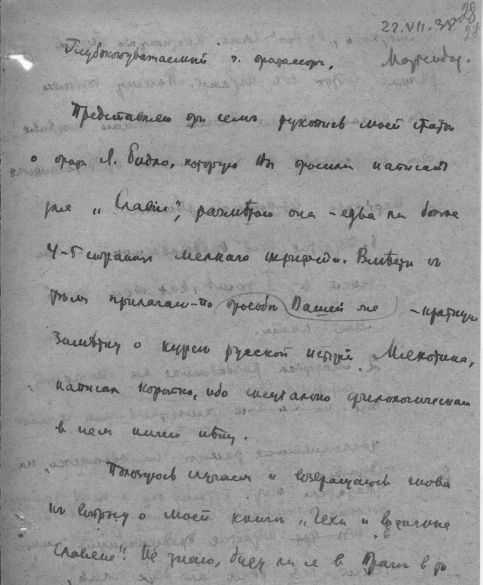 28
28
22.VII.38
Глубокоуважаемый г. профессор, Мариенбад.
Представляю при семъ рукопись моей статьи
о проф. Л. Бидло, которую Вы просили написать
для „Славіи", размѣром она - едва ли более
4-5 страниц мелкаго шрифта. Вмѣстѣ съ
тѣмъ прилагаю - по просьбѣ Вашей же - краткую
замѣтку о курсѣ русской исторіи Мякотина,
написал коротко, ибо спеціально филологическаго
в нем ничего нѣту.
Пользуюсь случаем и возвращаюсь снова
къ вопросу о моей книгѣ „Чехи и восточные
славяне". Не знаю, буду ли я в Праге в